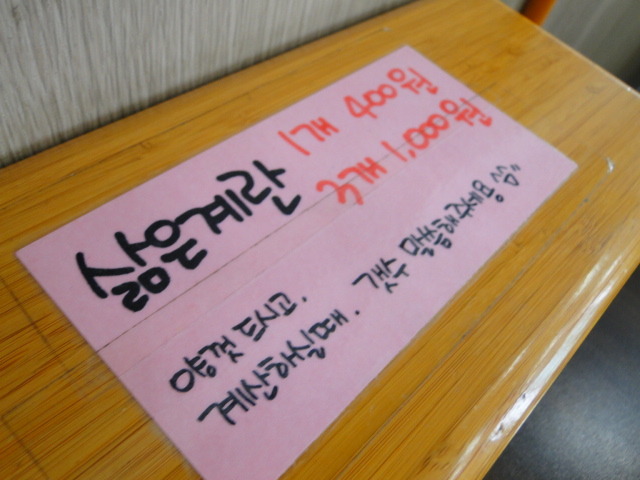 삶은계란
1개 400원
3개 1,000원
양껏 드시고,
계산하실때. 갯수 말씀해주세용